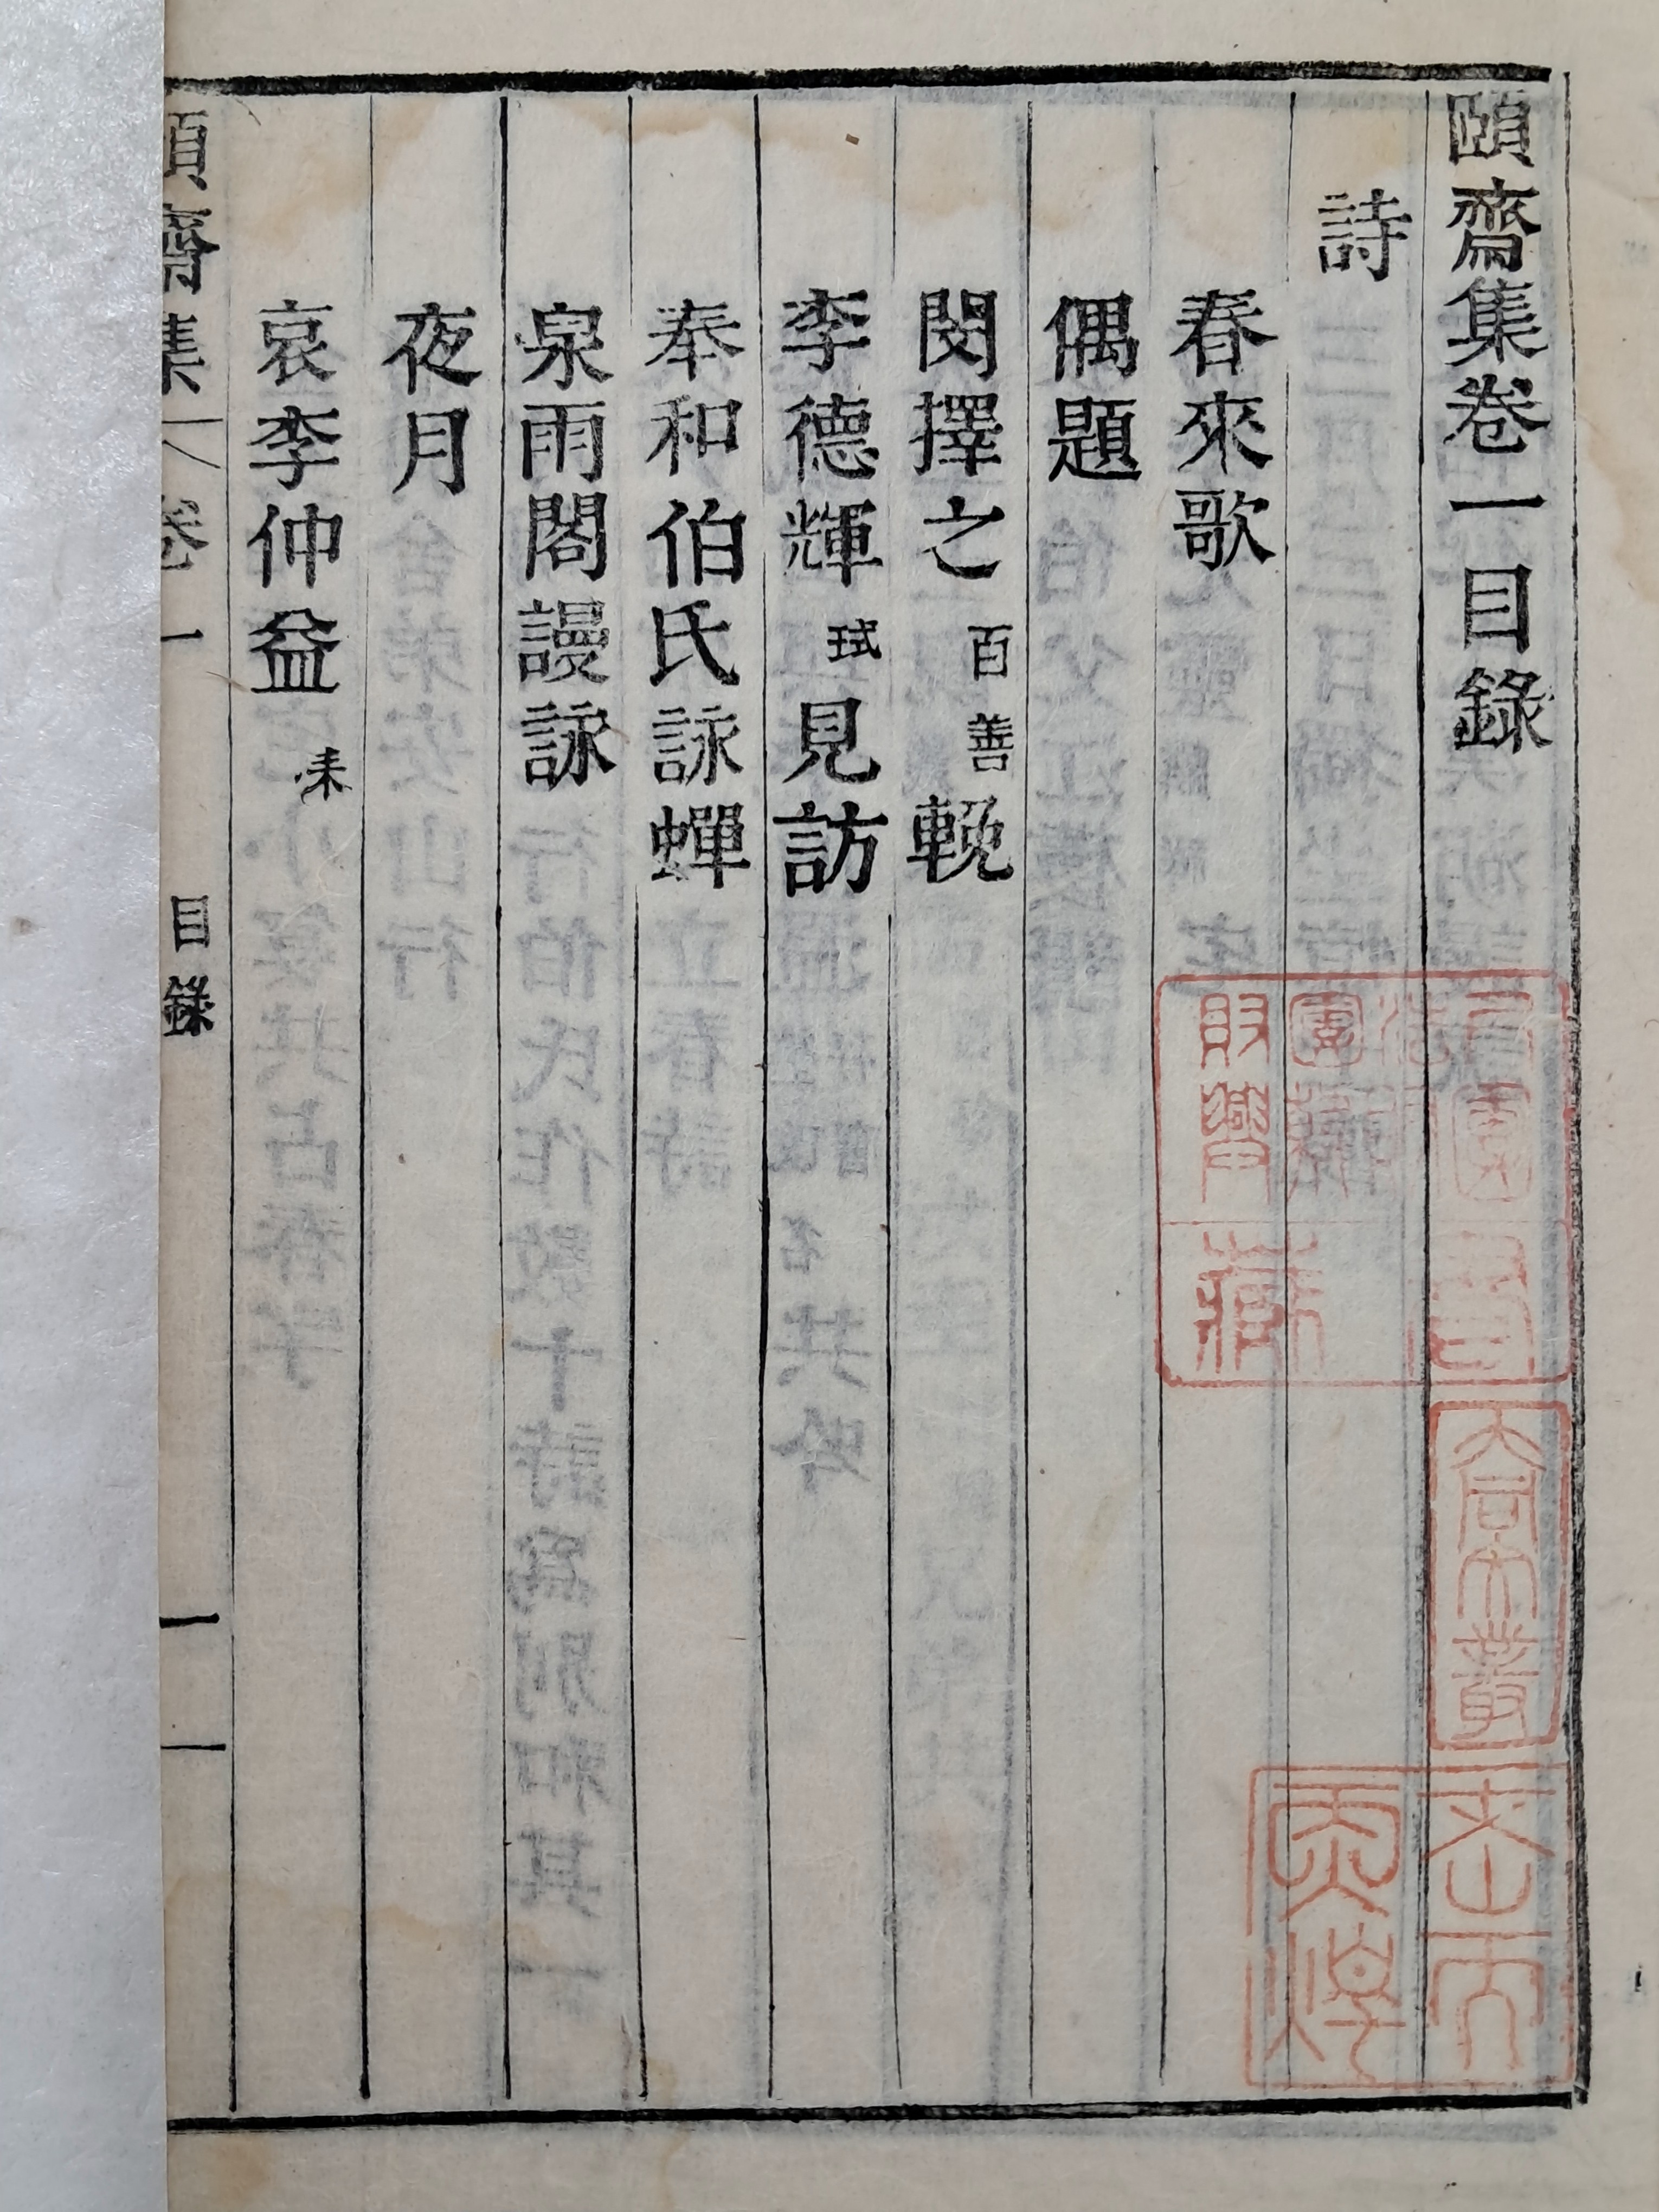 頤齋集卷一目錄
詩
春來歌
偶題
閔擇之百善輓
李德輝㻛見訪
奉和伯氏詠蟬
泉雨閣謾詠
夜月
哀李仲益耒
頤齋集 卷一 目錄 一